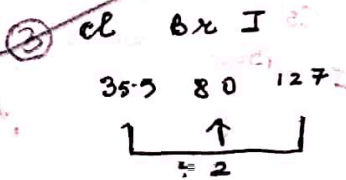 ③ Cl Br I
35.5 80 127
÷ 2